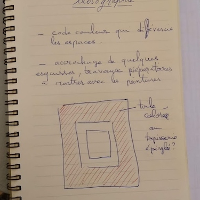 - code couleur qui différencie
les espaces
- accrochage de quelques
esquisses, travaux préparatoires
à mettre avec les peintures
toile
colorée
ou
tapisserie
épinglée ?